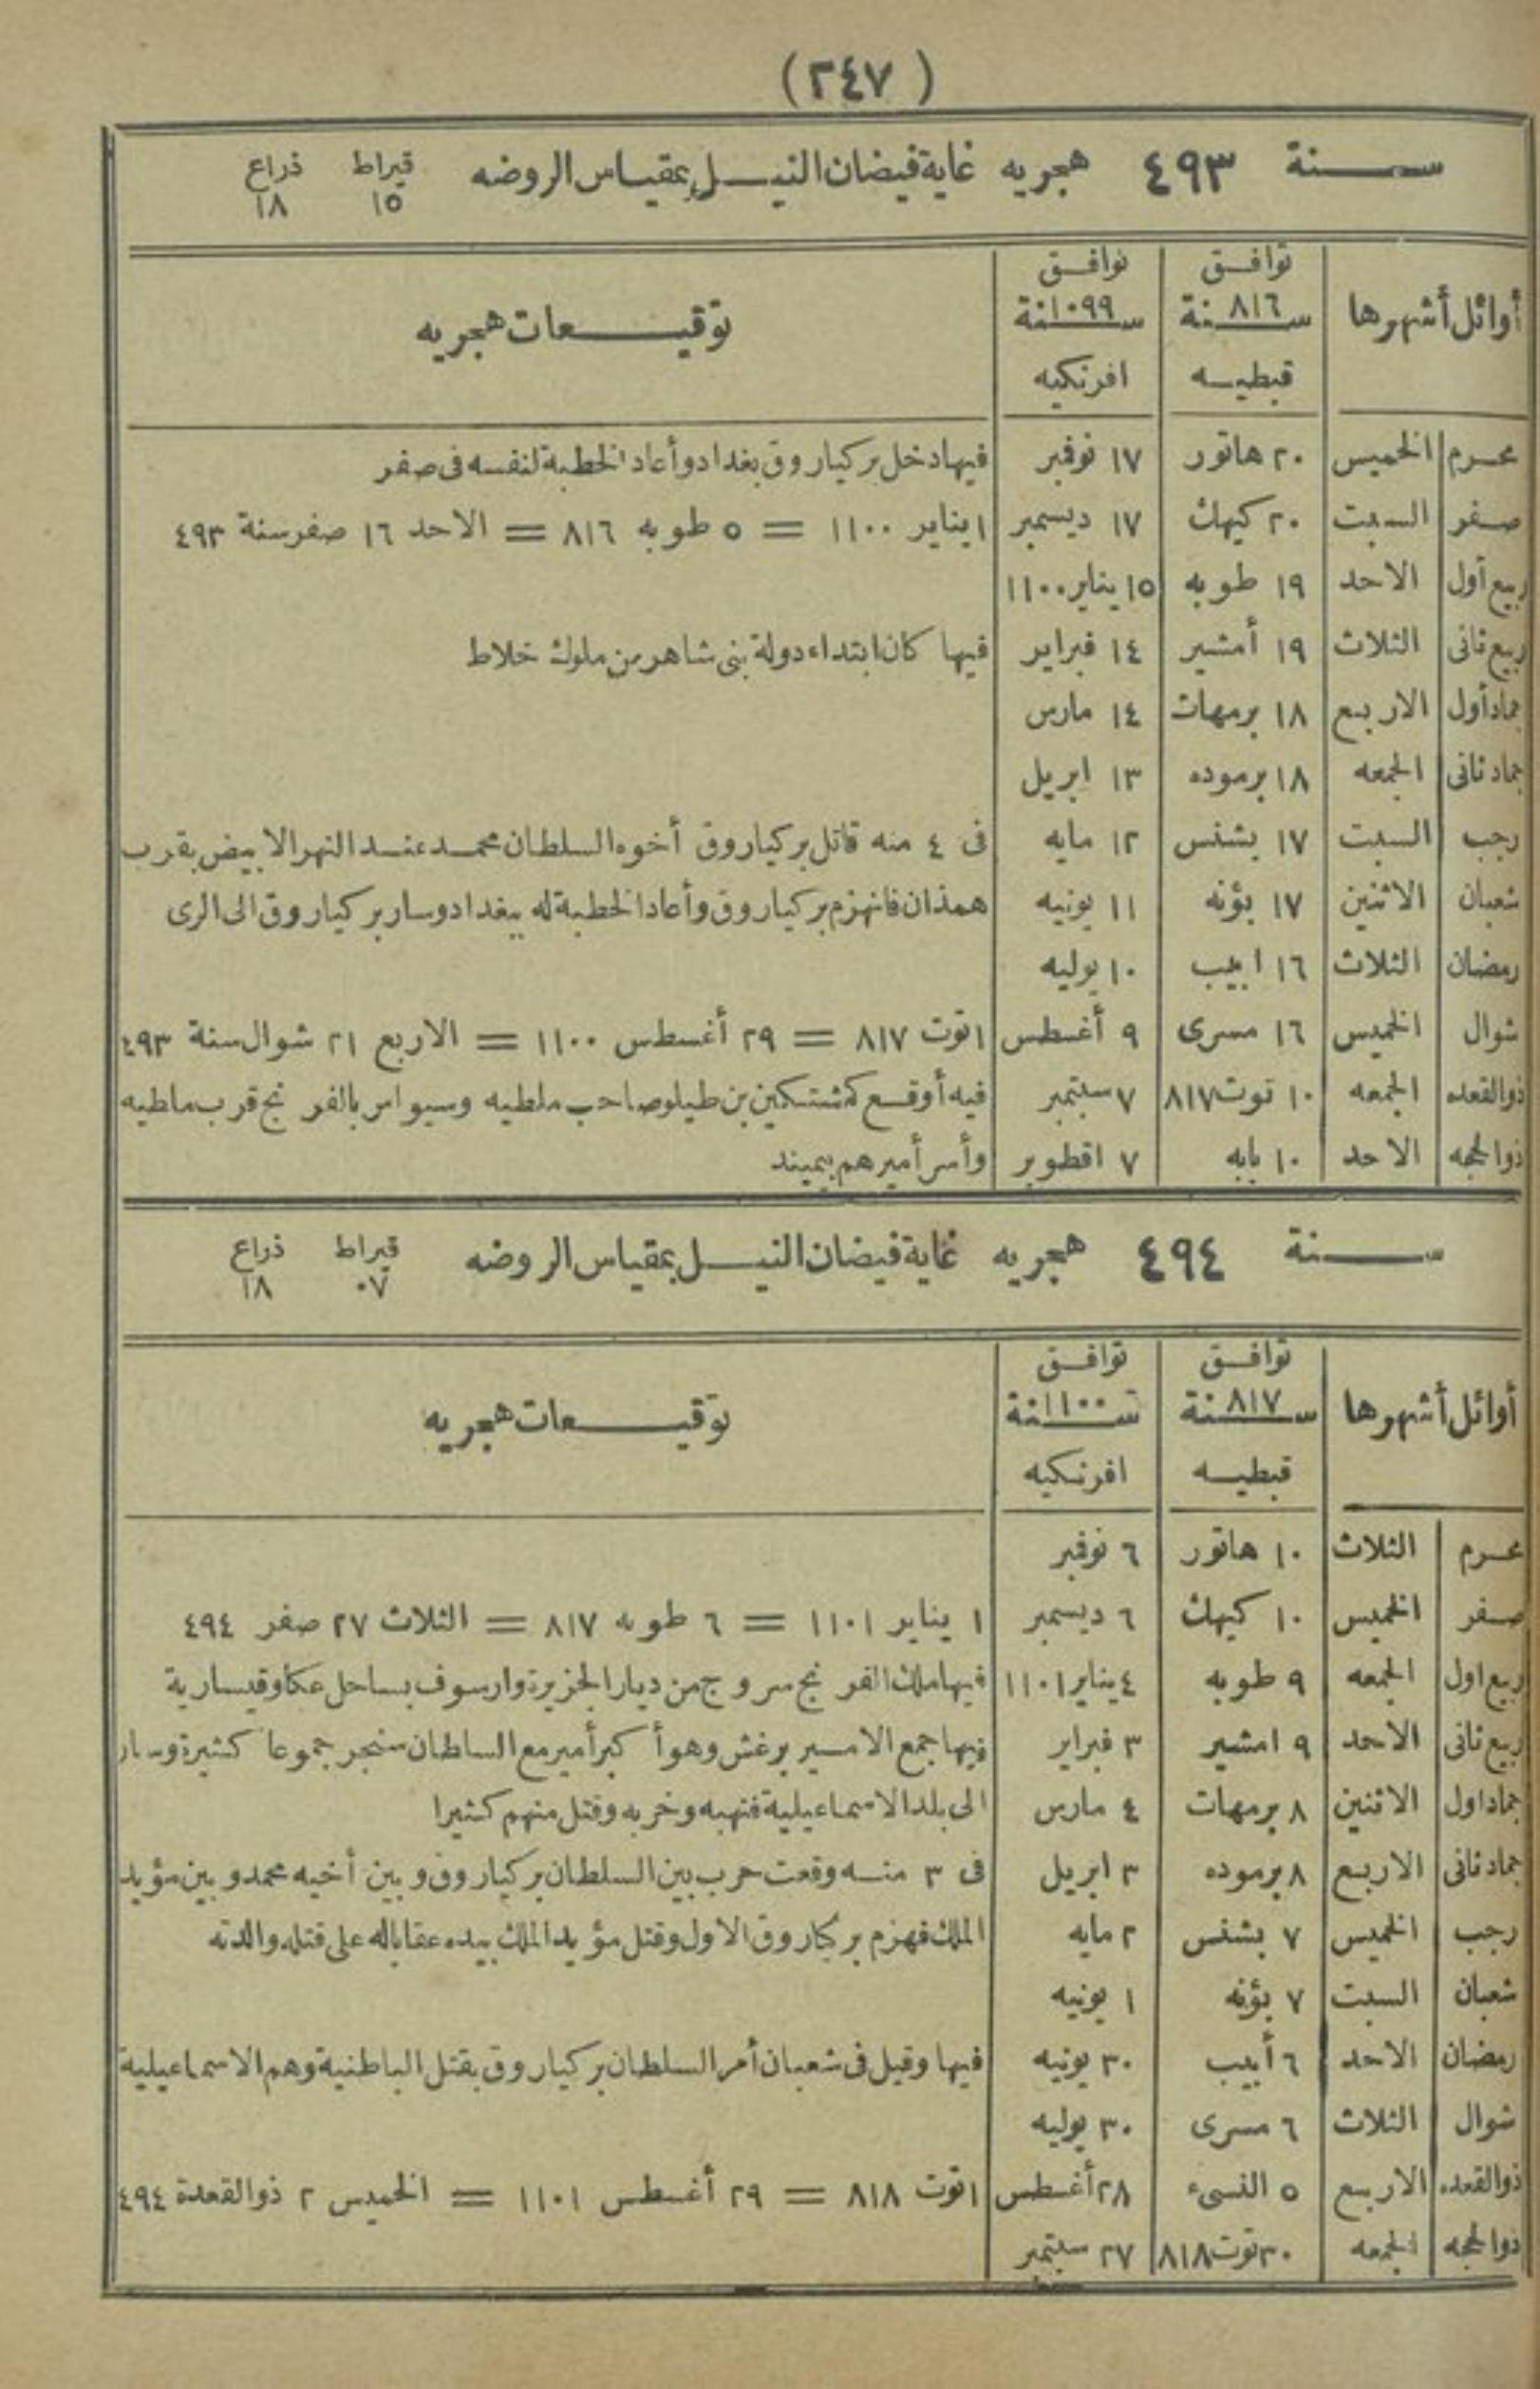 (٢٤٧)
سنة ٤٩٣ هجريه غاية فيضان النيل بمقياس الروضه قيراط ١٥ ذراع ١٨
أوائل أشهرها توافق سنة ٨١٦ قبطيه توافق سنة ١٠٩٩ افرنكيه توقيعات هجريه
محرم الخميس ٢٠ هاتور ١٧ نوفمبر فيها دخل بركياروق بغداد وأعاد الخطبة لنفسه فى صفر
صفر السبت ٢٠ كيهك ١٧ ديسمبر ١ يناير ١١٠٠ = ٥ طوبه ٨١٦ = الاحد ١٦ صفر سنة ٤٩٣
ربيع أول الاحد ١٩ طوبه ١٥ يناير ١١٠٠
ربيع ثانى الثلاث ١٩ أمشير ١٤ فبراير فيها كان ابتداء دولة بنى شاهر من ملوك خلاط
جماد أول الاربع ١٨ برمهات ١٤ مارس
جماد ثانى الجمعه ١٨ برموده ١٣ ابريل
رجب السبت ١٧ بشنس ١٢ مايه فى ٤ منه قاتل بركياروق أخوه السلطان محمد عند النهر الابيض بقرب
شعبان الاثنين ١٧ بؤنه ١١ يونيه همذان فانهزم بركياروق وأعاد الخطبة له ببغداد وسار بركياروق الى الرى
رمضان الثلاث ١٦ ابيب ١٠ يوليه
شوال الخميس ١٦ مسرى ٩ أغسطس ١ توت ٨١٧ = ٢٩ أغسطس ١١٠٠ = الاربع ٢١ شوال سنة ٤٩٣
ذوالقعده الجمعه ١٠ توت ٨١٧ ٧ سبتمبر فيه أوقع كمشتكين بن طيلو صاحب ملطيه وسيواس بالفرنج قرب ملطيه
ذوالحجه الاحد ١٠ بابه ٧ اقطوبر وأسر أميرهم بيميند
سنة ٤٩٤ هجريه غاية فيضان النيل بمقياس الروضه قيراط ٠٧ ذراع ١٨
أوائل أشهرها توافق سنة ٨١٧ قبطيه توافق سنة ١١٠٠ افرنكيه توقيعات هجريه
محرم الثلاث ١٠ هاتور ٦ نوفمبر
صفر الخميس ١٠ كيهك ٦ ديسمبر ١ يناير ١١٠١ = ٦ طوبه ٨١٧ = الثلاث ٢٧ صفر ٤٩٤
ربيع اول الجمعه ٩ طوبه ٤ يناير ١١٠١ فيها ملك الفرنج سروج من ديار الجزيرة وارسوف بساحل عكا وقيسارية
ربيع ثانى الاحد ٩ امشير ٣ فبراير فيها جمع الامير برغش وهو أكبر أمير مع السلطان سنجر جموعا كثيرة وسار
جماد اول الاثنين ٨ برمهات ٤ مارس الى بلد الاسماعيلية فنهبه وخربه وقتل منهم كثيرا
جماد ثانى الاربع ٨ برموده ٣ ابريل فى ٣ منه وقعت حرب بين السلطان بركياروق وبين أخيه محمد وبين مؤيد
رجب الخميس ٧ بشنس ٢ مايه الملك فهزم بركياروق الاول وقتل مؤيد الملك بيده عقابا له على قتله والدته
شعبان السبت ٧ بؤنه ١ يونيه
رمضان الاحد ٦ أبيب ٣٠ يونيه فيها وقيل فى شعبان أمر السلطان بركياروق بقتل الباطنية وهم الاسماعيلية
شوال الثلاث ٦ مسرى ٣٠ يوليه
ذوالقعده الاربع ٥ النسىء ٢٨ أغسطس ١ توت ٨١٨ = ٢٩ أغسطس ١١٠١ = الخميس ٢ ذوالقعدة ٤٩٤
ذوالحجه الجمعه ٣٠ توت ٨١٨ ٢٧ سبتمبر